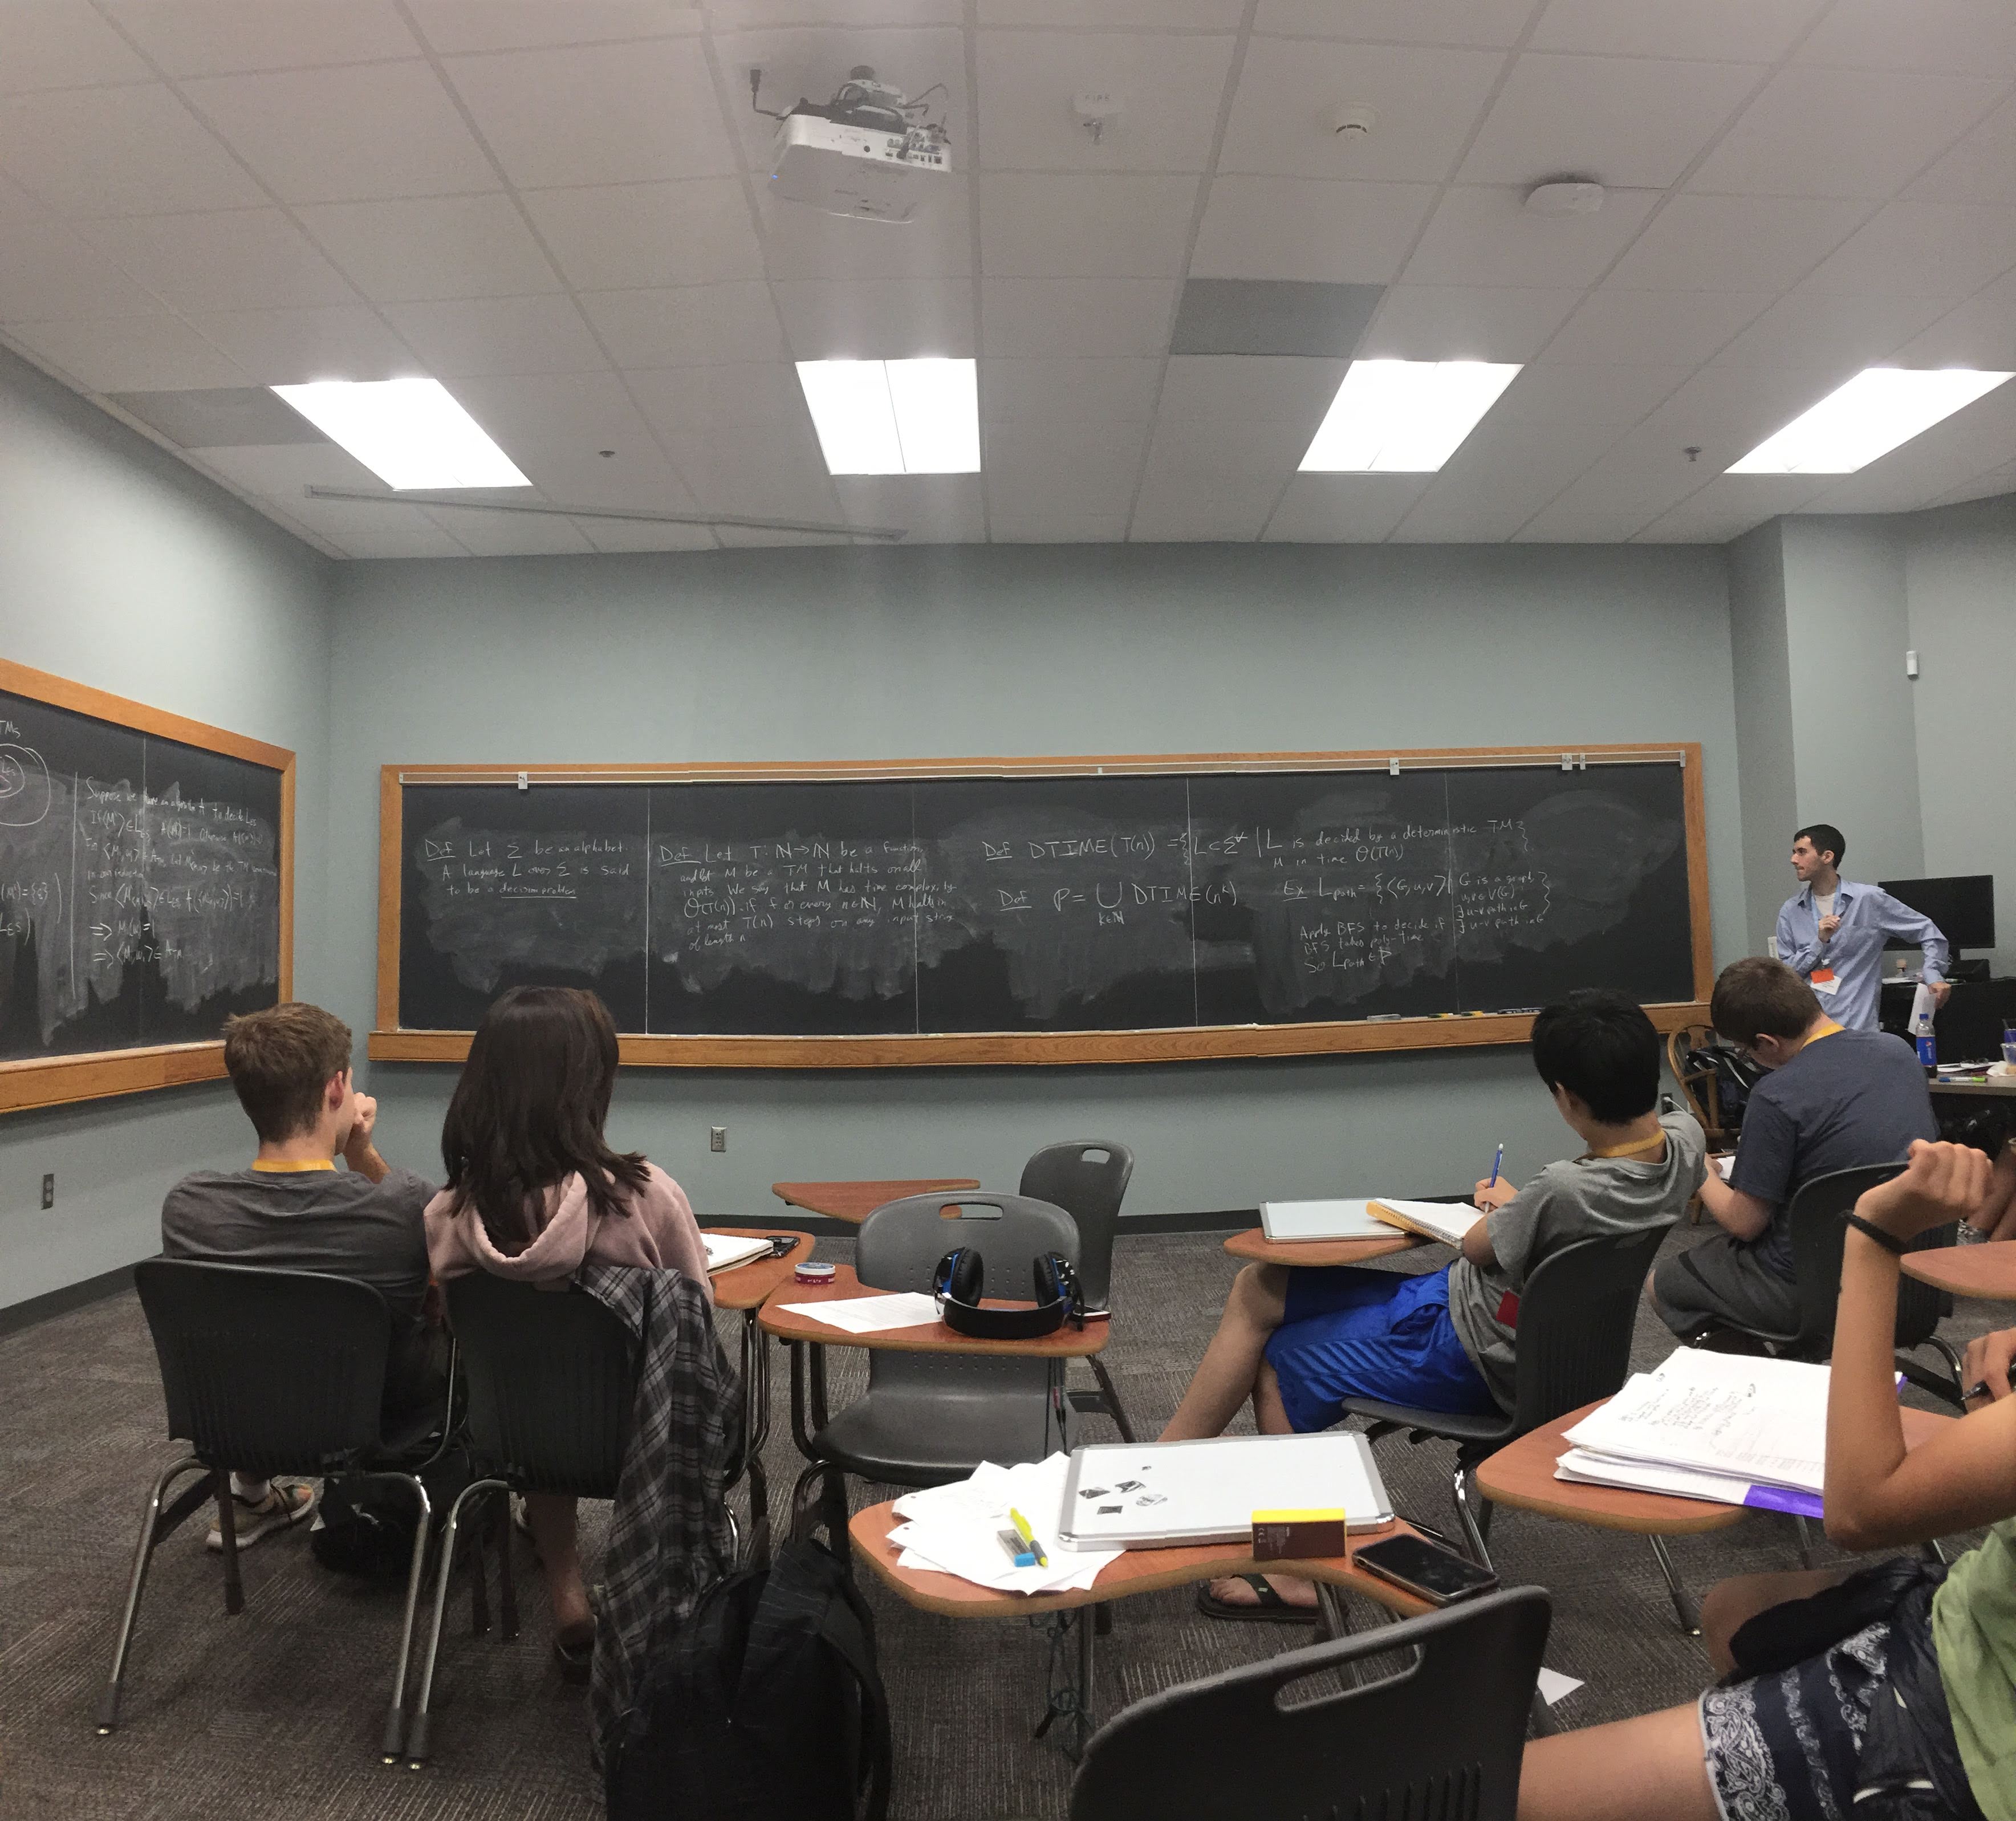 TMs
Suppose we have an algorithm A to decide L_ES
If ⟨M⟩ ∈ L_ES, A(M)=1. Otherwise
For ⟨M, w⟩ let be the TM
in our
Since
⇒ M(w)=1
⇒ ⟨M, w⟩ ∈ A_TM
Def Let Σ be an alphabet.
A language L over Σ is said
to be a decision problem
Def Let T: ℕ→ℕ be a function,
and let M be a TM that halts on all
inputs. We say that M has time complexity
O(T(n)) if for every n∈ℕ, M halts in
at most T(n) steps on any input string
of length n
Def DTIME(T(n)) = { L ⊂ Σ* | L is decided by a deterministic TM }
M in time O(T(n))
Def P = ⋃ DTIME(n^k)
k∈ℕ
Ex L_path = { ⟨G,u,v⟩ | G is a graph }
u,v ∈ V(G)
∃ u-v path in G
Apply BFS to decide if ∃ u-v path in G
BFS takes poly-time
So L_path ∈ P